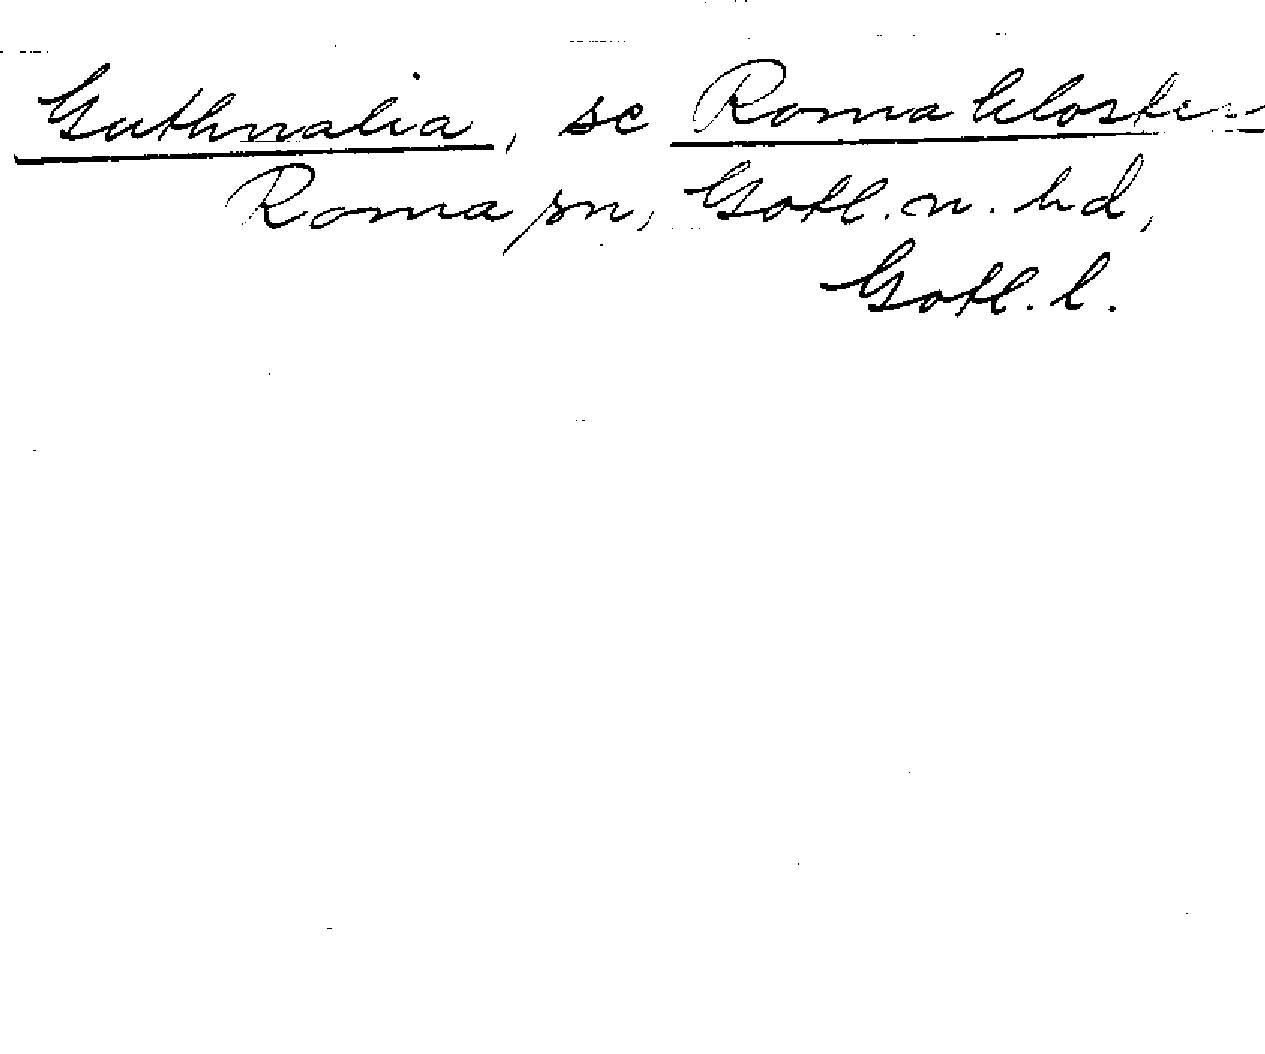 Guthnalia, se Roma kloster
Roma sn, Gotl. n. hd,
Gotl. l.